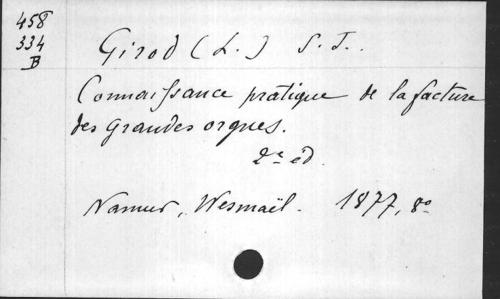 458
334
B
Girod (L.) S. J.
Connaissance pratique de la facture
des grandes orgues.
2e éd.
Namur, Wesmaël. 1877, 8o